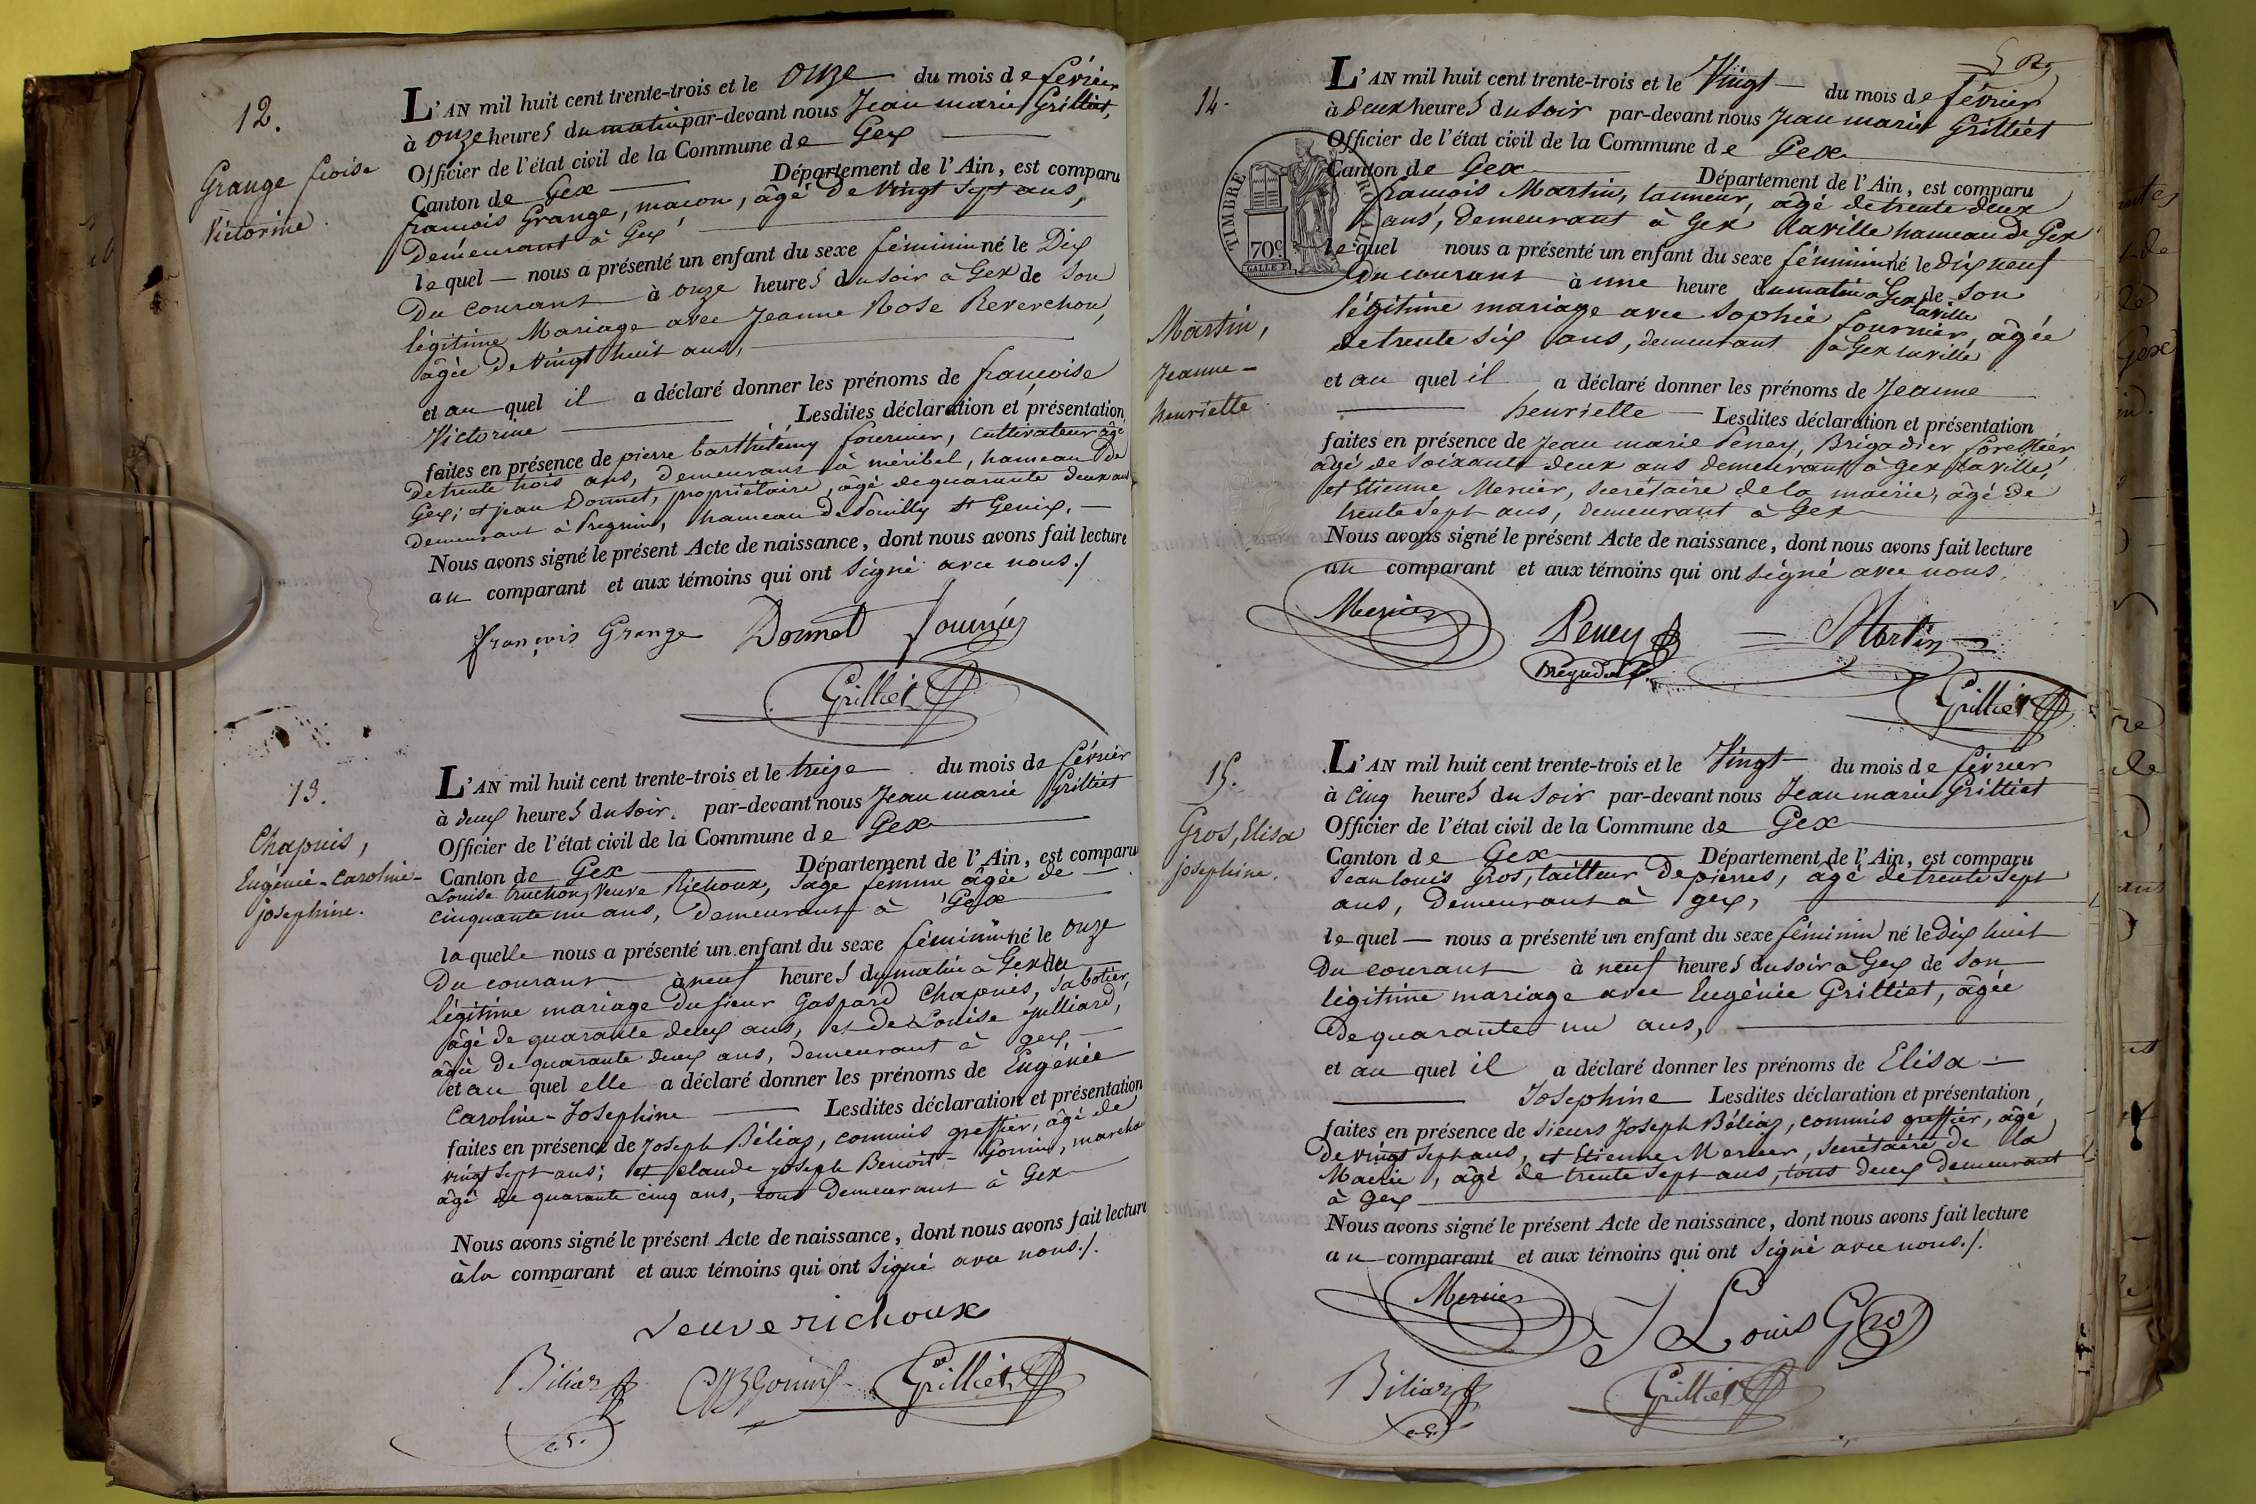 12.
Grange fcoise
Victorine.
L'AN mil huit cent trente-trois et le onze du mois de février
à onze heures du matin par-devant nous Jean marie Grilliet,
Officier de l'état civil de la Commune de Gex
Canton de Gex Département de l'Ain, est comparu
francois Grange, macon, âgé de vingt sept ans,
Demeurant à Gex,
lequel — nous a présenté un enfant du sexe féminin né le Dix
Du courant à onze heures du soir à Gex de son
légitime Mariage avec Jeanne Rose Reverchon,
âgée De vingt huit ans,
et au quel il a déclaré donner les prénoms de francoise
Victorine Lesdites déclaration et présentation
faites en présence de pierre barthélémy fournier, cultivateur âgé
de trente trois ans, demeurant à méribel, hameau De
Gex; et jean Donnet, propriétaire, âgé de quarante deux ans
demeurant à Pregnin, hameau de Pouilly St Genix. —
Nous avons signé le présent Acte de naissance, dont nous avons fait lecture
au comparant et aux témoins qui ont signé avec nous./
françois Grange Donnet fournier
Grilliet
13.
Chapuis,
Eugénie-caroline-
josephine.
L'AN mil huit cent trente-trois et le treize du mois de février
à deux heures du soir. par-devant nous Jean marie Grilliet
Officier de l'état civil de la Commune de Gex
Canton de Gex Département de l'Ain, est comparu
Louise truchon, veuve Richoux, sage femme âgée de
cinquante un ans, Demeurant à Gex
laquelle nous a présenté un enfant du sexe féminin né le onze
Du courant à neuf heures du matin à Gex du
légitime mariage du sieur Gaspard Chapuis, sabotier,
âgé de quarante deux ans, et de Louise Julliard,
âgée De quarante deux ans, demeurant à gex, —
et au quel elle a déclaré donner les prénoms de Eugénie
Caroline-Josephine Lesdites déclaration et présentation
faites en présence de Joseph Béliaz, commis greffier, âgé de
vingt sept ans; et claude joseph Benoit-Gonin, marchand
âgé de quarante cinq ans, tous Demeurant à Gex
Nous avons signé le présent Acte de naissance, dont nous avons fait lecture
à la comparant et aux témoins qui ont signé avec nous./.
veuve richoux
Béliaz CJBGonin Grilliet
c.g.
14.
Martin,
Jeanne-
henriette
TIMBRE RO
70c
L'AN mil huit cent trente-trois et le Vingt du mois de février
à Deux heures du soir par-devant nous Jean marie Grilliet
Officier de l'état civil de la Commune de Gex
Canton de Gex Département de l'Ain, est comparu
francois Martin, tanneur, âgé de trente deux
ans, Demeurant à Gex laville hameau de Gex
lequel nous a présenté un enfant du sexe féminin né le dix neuf
Du courant à une heure du matin à Gex laville de son
légitime mariage avec Sophie fournier, âgée
de trente six ans, demeurant à Gex laville
et au quel il a déclaré donner les prénoms de Jeanne
henriette — Lesdites déclaration et présentation
faites en présence de Jean marie Peney, Brigadier forestier
âgé de soixante deux ans demeurant à Gex laville,
et Etienne Mercier, secrétaire de la mairie, âgé de
trente sept ans, demeurant à Gex
Nous avons signé le présent Acte de naissance, dont nous avons fait lecture
au comparant et aux témoins qui ont signé avec nous.
Mercier Peney Martin
Brigadier Grilliet
15.
Gros, Elisa
josephine.
L'AN mil huit cent trente-trois et le Vingt du mois de février
à cinq heures du soir par-devant nous Jean marie Grilliet
Officier de l'état civil de la Commune de Gex
Canton de Gex Département de l'Ain, est comparu
Jean louis Gros, tailleur De pierres, âgé de trente sept
ans, Demeurant à gex,
lequel — nous a présenté un enfant du sexe féminin né le dix huit
Du courant à neuf heures du soir à Gex de son
légitime mariage avec Eugénie Grilliet, âgée
De quarante un ans,
et au quel il a déclaré donner les prénoms de Elisa —
Josephine Lesdites déclaration et présentation
faites en présence de sieurs Joseph Béliaz, commis greffier, âgé
De vingt sept ans, et Etienne Mercier, secrétaire de la
Mairie, âgé de trente sept ans, tous deux demeurant
à gex
Nous avons signé le présent Acte de naissance, dont nous avons fait lecture
au comparant et aux témoins qui ont signé avec nous./.
Mercier J Louis Gros
Béliaz Grilliet
c.g.